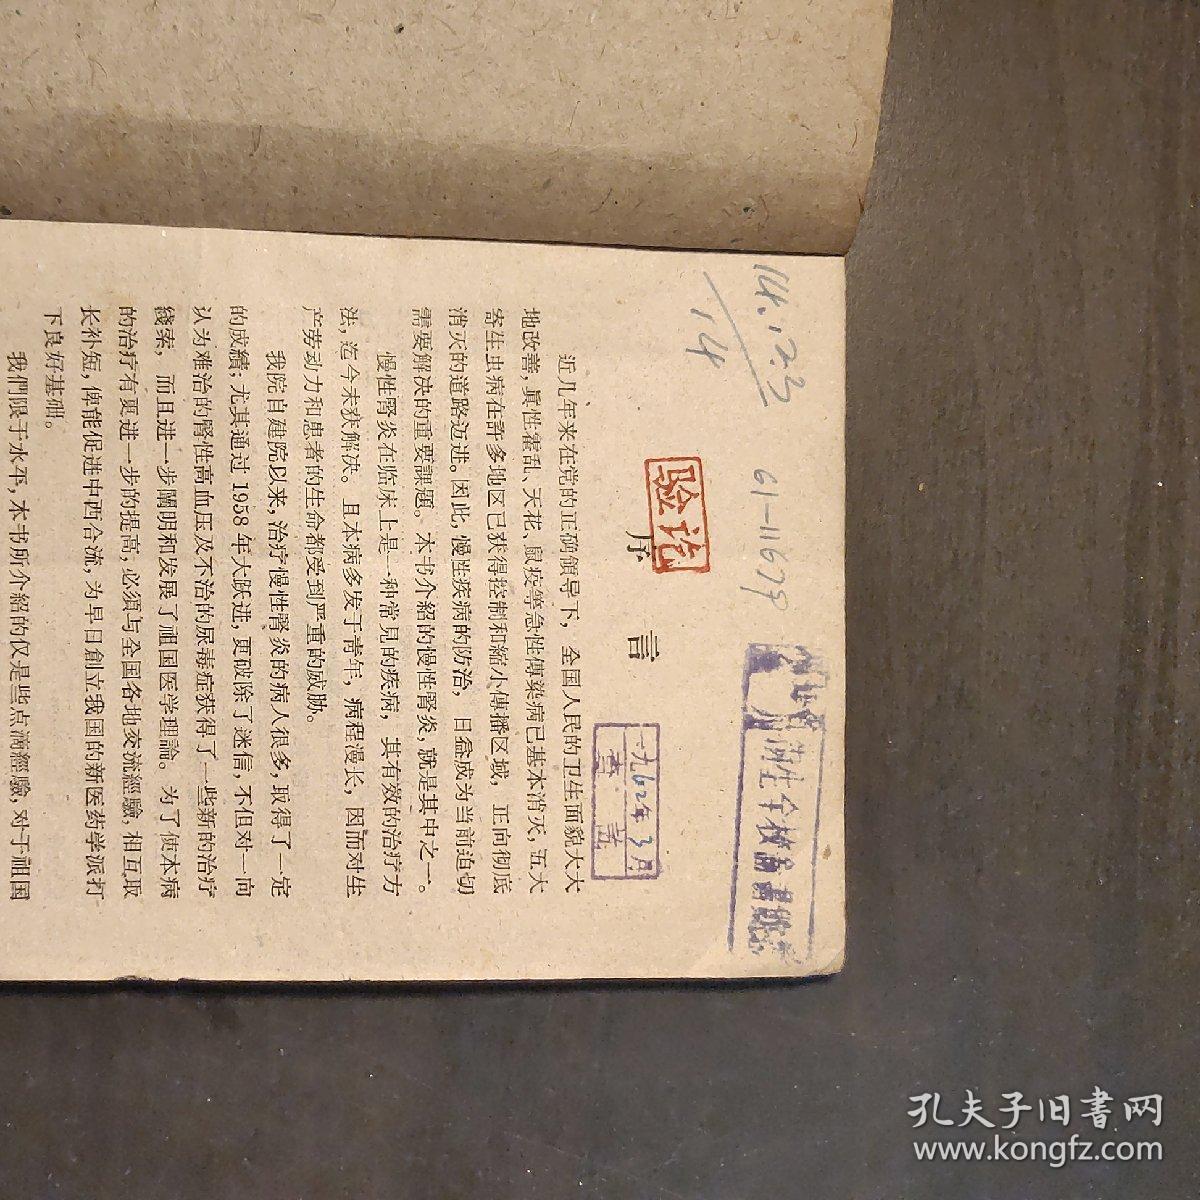 14.123
14
61-11679
验讫
序 言
一九62年3月
近几年来在党的正确領导下，全国人民的卫生面貌大大
地改善，眞性霍乱、天花、鼠疫等急性傳染病已基本消灭，五大
寄生虫病在許多地区已获得控制和縮小傳播区域，正向彻底
消灭的道路迈进。因此，慢性疾病的防治，日益成为当前迫切
需要解决的重要課題。本书介紹的慢性腎炎，就是其中之一。
慢性腎炎在临床上是一种常見的疾病，其有效的治疗方
法，迄今未获解决。且本病多发于青年，病程漫长，因而对生
产劳动力和患者的生命都受到严重的威胁。
我院自建院以来，治疗慢性腎炎的病人很多，取得了一定
的成績；尤其通过1958年大跃进，更破除了迷信，不但对一向
认为难治的腎性高血压及不治的尿毒症获得了一些新的治疗
綫索，而且进一步闡明和发展了祖国医学理論。为了使本病
的治疗有更进一步的提高，必須与全国各地交流經驗，相互取
长补短，俾能促进中西合流，为早日創立我国的新医药学派打
下良好基础。
我們限于水平，本书所介紹的仅是些点滴經驗，对于祖国
孔夫子旧书网
www.kongfz.com